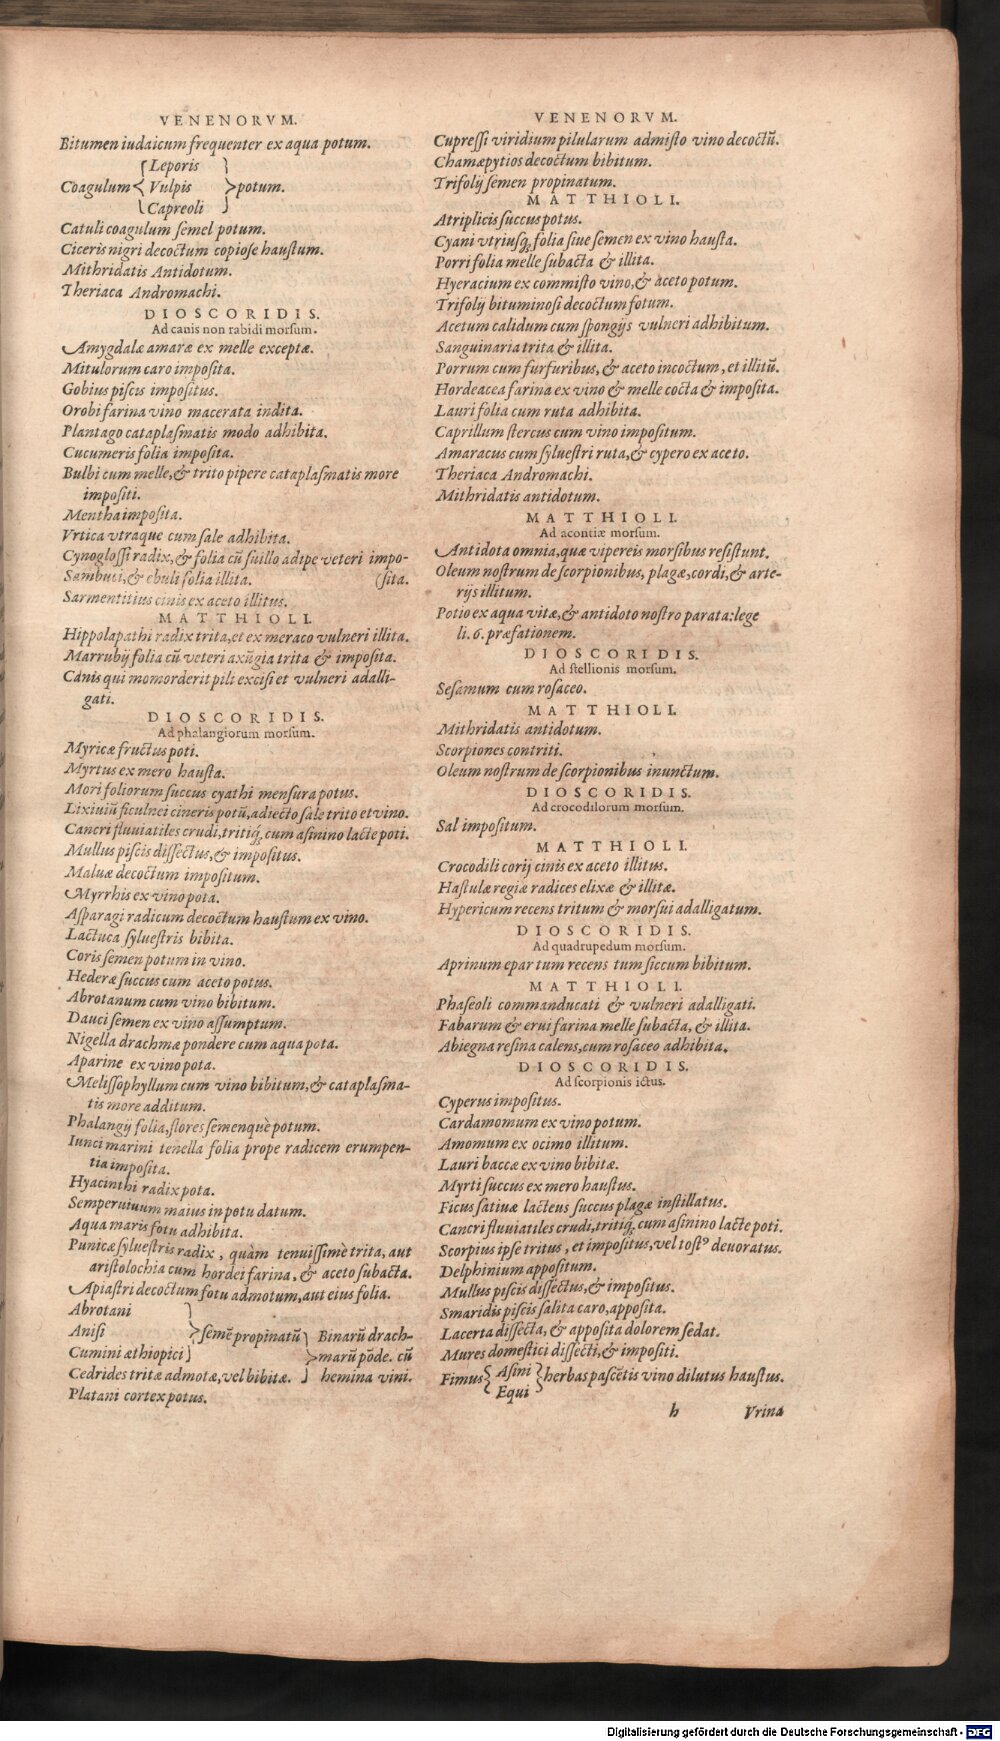 VENENORVM.
Bitumen iudaicum frequenter ex aqua potum.
Leporis
Coagulum Vulpis potum.
Capreoli
Catuli coagulum semel potum.
Ciceris nigri decoctum copiose haustum.
Mithridatis Antidotum.
Theriaca Andromachi.
DIOSCORIDIS.
Ad canis non rabidi morsum.
Amygdalæ amaræ ex melle exceptæ.
Mitulorum caro imposita.
Gobius piscis impositus.
Orobi farina vino macerata indita.
Plantago cataplasmatis modo adhibita.
Cucumeris folia imposita.
Bulbi cum melle, & trito pipere cataplasmatis more
impositi.
Mentha imposita.
Vrtica vtraque cum sale adhibita.
Cynoglossi radix, & folia cũ suillo adipe veteri impo-
Sambuci, & ebuli folia illita. (sita.
Sarmentitius cinis ex aceto illitus.
MATTHIOLI.
Hippolapathi radix trita, et ex meraco vulneri illita.
Marrubij folia cũ veteri axũgia trita & imposita.
Canis qui momorderit pili excisi et vulneri adalli-
gati.
DIOSCORIDIS.
Ad phalangiorum morsum.
Myricæ fructus poti.
Myrtus ex mero hausta.
Mori foliorum succus cyathi mensura potus.
Lixiuiũ ficulnei cineris potũ, adiecto sale trito et vino.
Cancri fluuiatiles crudi, tritiq́; cum asinino lacte poti.
Mullus piscis dissectus, & impositus.
Maluæ decoctum impositum.
Myrrhis ex vino pota.
Asparagi radicum decoctum haustum ex vino.
Lactuca syluestris bibita.
Coris semen potum in vino.
Hederæ succus cum aceto potus.
Abrotanum cum vino bibitum.
Dauci semen ex vino assumptum.
Nigella drachmæ pondere cum aqua pota.
Aparine ex vino pota.
Melissophyllum cum vino bibitum, & cataplasma-
tis more additum.
Phalangij folia, flores semenquè potum.
Iunci marini tenella folia prope radicem erumpen-
tia imposita.
Hyacinthi radix pota.
Semperuiuum maius in potu datum.
Aqua maris fotu adhibita.
Punicæ syluestris radix, quàm tenuissimè trita, aut
aristolochia cum hordei farina, & aceto subacta.
Apiastri decoctum fotu admotum, aut eius folia.
Abrotani
Anisi semẽ propinatũ Binarũ drach-
Cumini æthiopici marũ põde. cũ
Cedrides tritæ admotæ, vel bibitæ. hemina vini.
Platani cortex potus.
VENENORVM.
Cupressi viridium pilularum admisto vino decoctũ.
Chamæpytios decoctum bibitum.
Trifolij semen propinatum.
MATTHIOLI.
Atriplicis succus potus.
Cyani vtriusq́; folia siue semen ex vino hausta.
Porri folia melle subacta & illita.
Hyeracium ex commisto vino, & aceto potum.
Trifolij bituminosi decoctum fotum.
Acetum calidum cum spongijs vulneri adhibitum.
Sanguinaria trita & illita.
Porrum cum furfuribus, & aceto incoctum, et illitũ.
Hordeacea farina ex vino & melle cocta & imposita.
Lauri folia cum ruta adhibita.
Caprillum stercus cum vino impositum.
Amaracus cum syluestri ruta, & cypero ex aceto.
Theriaca Andromachi.
Mithridatis antidotum.
MATTHIOLI.
Ad acontiæ morsum.
Antidota omnia, quæ vipereis morsibus resistunt.
Oleum nostrum de scorpionibus, plagæ, cordi, & arte-
rijs illitum.
Potio ex aqua vitæ, & antidoto nostro parata: lege
li. 6. præfationem.
DIOSCORIDIS.
Ad stellionis morsum.
Sesamum cum rosaceo.
MATTHIOLI.
Mithridatis antidotum.
Scorpiones contriti.
Oleum nostrum de scorpionibus inunctum.
DIOSCORIDIS.
Ad crocodilorum morsum.
Sal impositum.
MATTHIOLI.
Crocodili corij cinis ex aceto illitus.
Hastulæ regiæ radices elixæ & illitæ.
Hypericum recens tritum & morsui adalligatum.
DIOSCORIDIS.
Ad quadrupedum morsum.
Aprinum epar tum recens tum siccum bibitum.
MATTHIOLI.
Phaseoli commanducati & vulneri adalligati.
Fabarum & erui farina melle subacta, & illita.
Abiegna resina calens, cum rosaceo adhibita.
DIOSCORIDIS.
Ad scorpionis ictus.
Cyperus impositus.
Cardamomum ex vino potum.
Amomum ex ocimo illitum.
Lauri baccæ ex vino bibitæ.
Myrti succus ex mero haustus.
Ficus satiuæ lacteus succus plagæ instillatus.
Cancri fluuiatiles crudi, tritiq́; cum asinino lacte poti.
Scorpius ipse tritus, et impositus, vel tostꝰ deuoratus.
Delphinium appositum.
Mullus piscis dissectus, & impositus.
Smaridis piscis salita caro, apposita.
Lacerta dissecta, & apposita dolorem sedat.
Mures domestici dissecti, & impositi.
Fimus Asini herbas pascẽtis vino dilutus haustus.
Equi
h Vrina
Digitalisierung gefördert durch die Deutsche Forschungsgemeinschaft - DFG